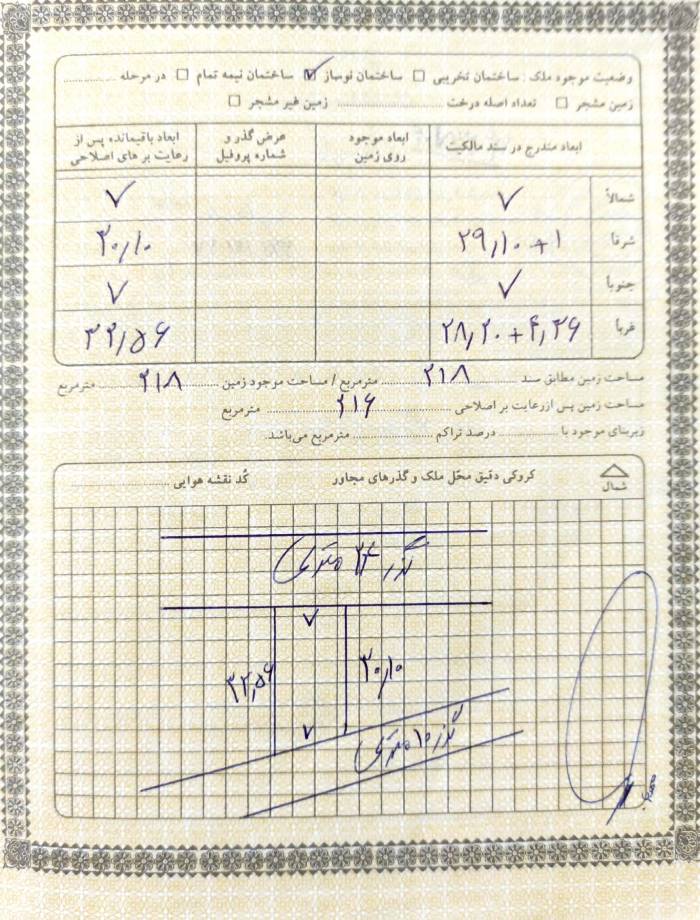 وضعیت موجود ملک : ساختمان تخریبی ☐ ساختمان نوساز ☑ ساختمان نیمه تمام ☐ در مرحله ..........
زمین مشجر ☐ تعداد اصله درخت .......... زمین غیر مشجر ☐
ابعاد مندرج در سند مالکیت
ابعاد موجود روی زمین
عرض گذر و شماره پروفیل
ابعاد باقیمانده پس از رعایت بر های اصلاحی
شمالاً ۷ ۷
شرقاً ۲۹,۱۰ + ۱ ۳۰,۱۰
جنوباً ۷ ۷
غرباً ۲۸,۲۰ + ۴,۳۶ ۳۲,۵۶
مساحت زمین مطابق سند ۲۱۸ مترمربع / مساحت موجود زمین ۲۱۸ مترمربع
مساحت زمین پس از رعایت بر اصلاحی ۲۱۶ مترمربع
زیربنای موجود با .......... درصد تراکم .......... مترمربع می‌باشد.
شمال
کروکی دقیق محل ملک و گذرهای مجاور
کد نقشه هوایی ..........
گذر ۲۴ متری
۷
۳۲,۵۶
۳۰,۱۰
۷
گذر ۱۰ متری